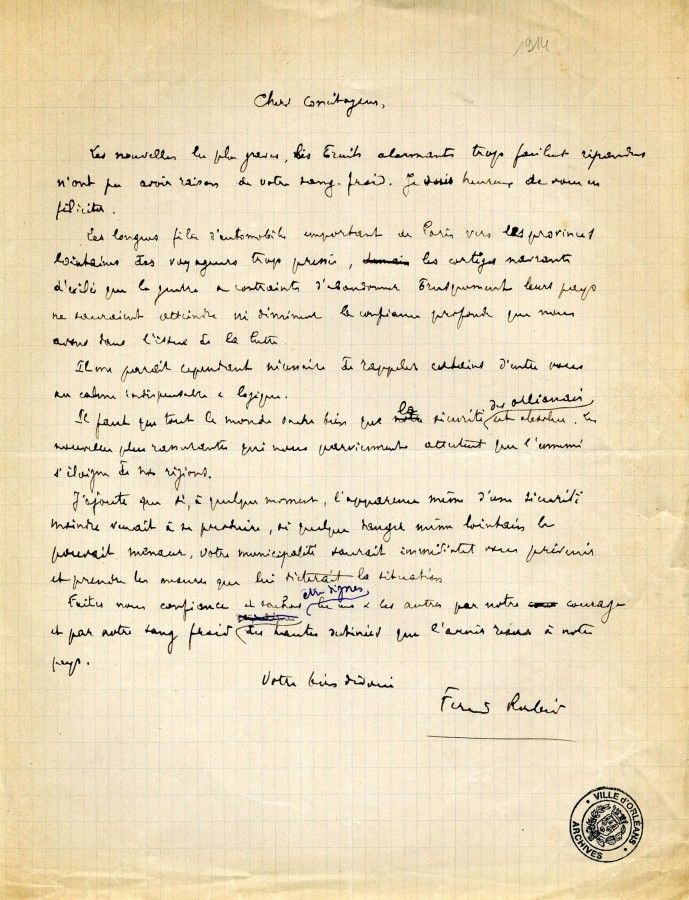 1914
Chers Concitoyens,
Les nouvelles les plus graves, les bruits alarmants trop facilement répandus
n'ont pu avoir raison de votre sang-froid. Je suis heureux de vous en
féliciter.
Les longues files d'automobiles emportant de Paris vers les provinces
lointaines des voyageurs trop pressés, les cortèges navrants
d'exilés que la guerre a contraints d'abandonner brusquement leurs pays
ne sauraient atteindre ni diminuer la confiance profonde que nous
avons dans l'issue de la lutte.
Il me paraît cependant nécessaire de rappeler certains d'entre vous
au calme indispensable & logique.
des orléanais
Il faut que tout le monde sache bien que la sécurité est absolue. Les
nouvelles plus rassurantes qui nous parviennent attestent que l'ennemi
s'éloigne de nos régions.
J'ajoute que si, à quelque moment, l'apparence même d'une sécurité
moindre venait à se produire, si quelque danger même lointain la
pouvait menacer, votre municipalité saurait immédiatet vous prévenir
et prendre les mesures que lui dicterait la situation
être dignes
Faites nous confiance et sachons les uns & les autres par notre courage
et par notre sang froid des hautes destinées que l'avenir réserve à notre
pays.
Votre bien dévoué
Fernd Rabier
VILLE d'ORLÉANS
ARCHIVES